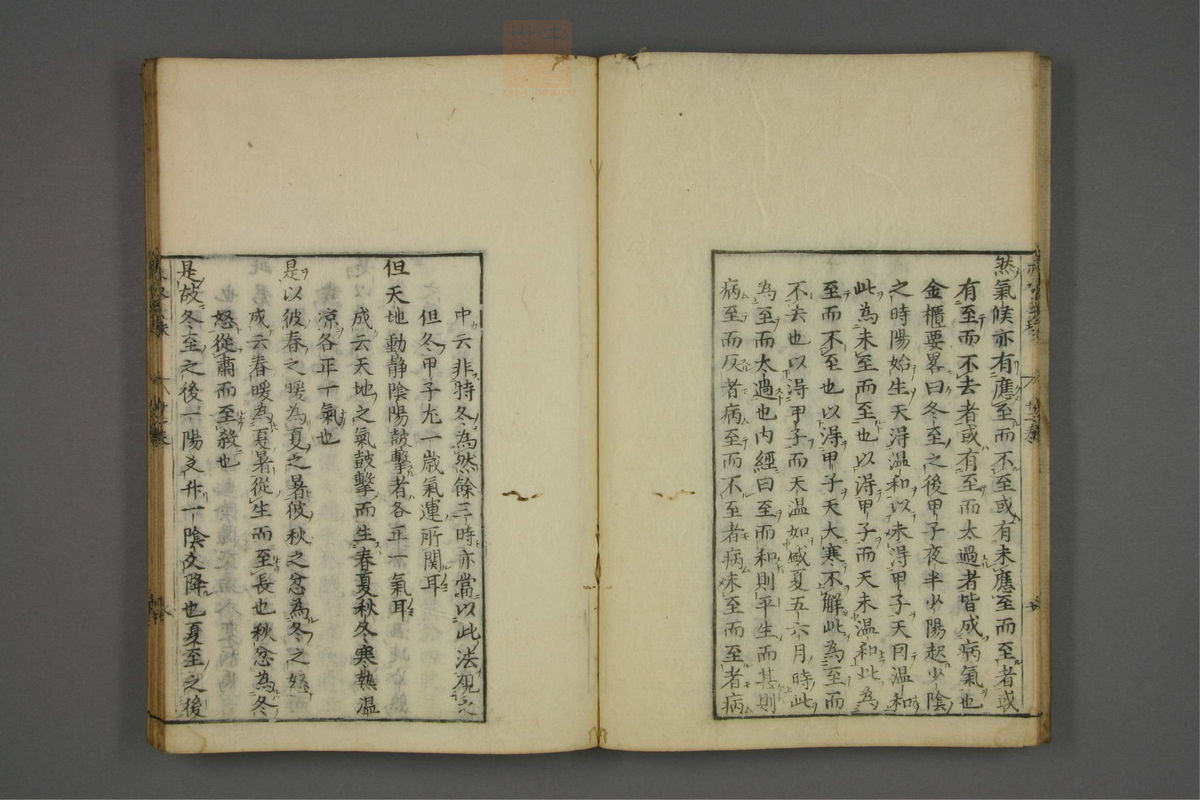 然氣候亦有應至而不至或有未應至而至者或
有至而不去者或有至而太過者皆成病氣也
金櫃要畧曰冬至之後甲子夜半少陽起少陰
之時陽始生天得温和以未得甲子天因温和
此為未至而至也以得甲子而天未温和此為
至而不至也以得甲子天大寒不解此為至而
不去也以得甲子而天温如盛夏五六月時此
為至而太過也内經曰至而和則平生而甚則
病至而反者病至而不至者病未至而至者病
中云非特冬為然餘三時亦當以此法視之
但冬甲子尤一歳氣運所関耳
但天地動静陰陽鼓擊者各正一氣耳
成云天地之氣鼓擊而生春夏秋冬寒熱温
凉各正一氣也
是以彼春之暖為夏之暑彼秋之忿為冬之怒
成云春暖為夏暑從生而至長也秋忿為冬
怒從肅而至殺也
是故冬至之後一陽爻升一陰爻降也夏至之後